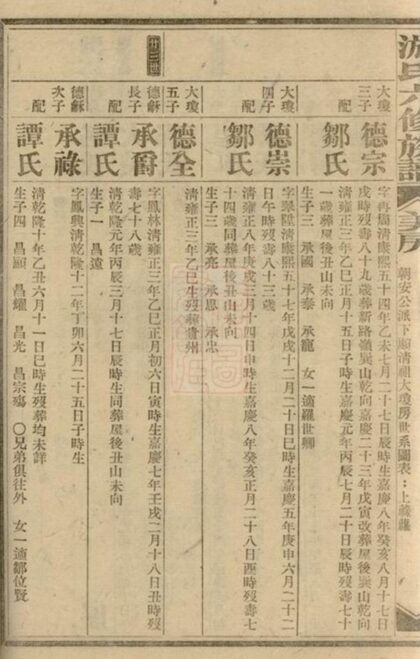 游氏六修族譜
朝安公派
清祖大瓊房世系圖表：上
大瓊三子 德宗
清康熙五十四年乙未七月二十七日辰時生嘉慶八年癸亥八月十七日
戌時歿壽八十九歲葬新路嶺巽山乾向嘉慶二十三年戊寅改葬屋後巽山乾向
配 鄒氏
清雍正三年乙巳正月十五日子時生嘉慶元年丙辰七月二十日辰時歿壽七十
一歲葬屋後丑山未向
生子三 承國 承泰 承寵 女一適羅世
大瓊四子 德崇
清康熙五十七年戊戌十二月二十日巳時生嘉慶五年庚申六月二十二
日午時歿壽八十三歲
配 鄒氏
清雍正八年庚戌三月十四日申時生嘉慶八年癸亥正月二十八日酉時歿壽七
十四歲同葬屋後丑山未向
生子三 承亮 承思 承忠
大瓊五子 德全
清雍正三年乙巳生歿貴州
廿三世
德龢長子 承爵
字鳳林清雍正三年乙巳正月初六日寅時生嘉慶七年壬戌二月十八日丑時歿
壽七十八歲
配 譚氏
清乾隆元年丙辰三月十七日辰時生同葬屋後丑山未向
生子一 昌遠
德龢次子 承祿
字鳳興清乾隆十二年丁卯六月二十五日子時生
配 譚氏
清乾隆十年乙丑六月十一日巳時生歿葬均未詳
生子四 昌顯 昌耀 昌光 昌宗殤 〇兄弟俱往外 女一適鄒位賢